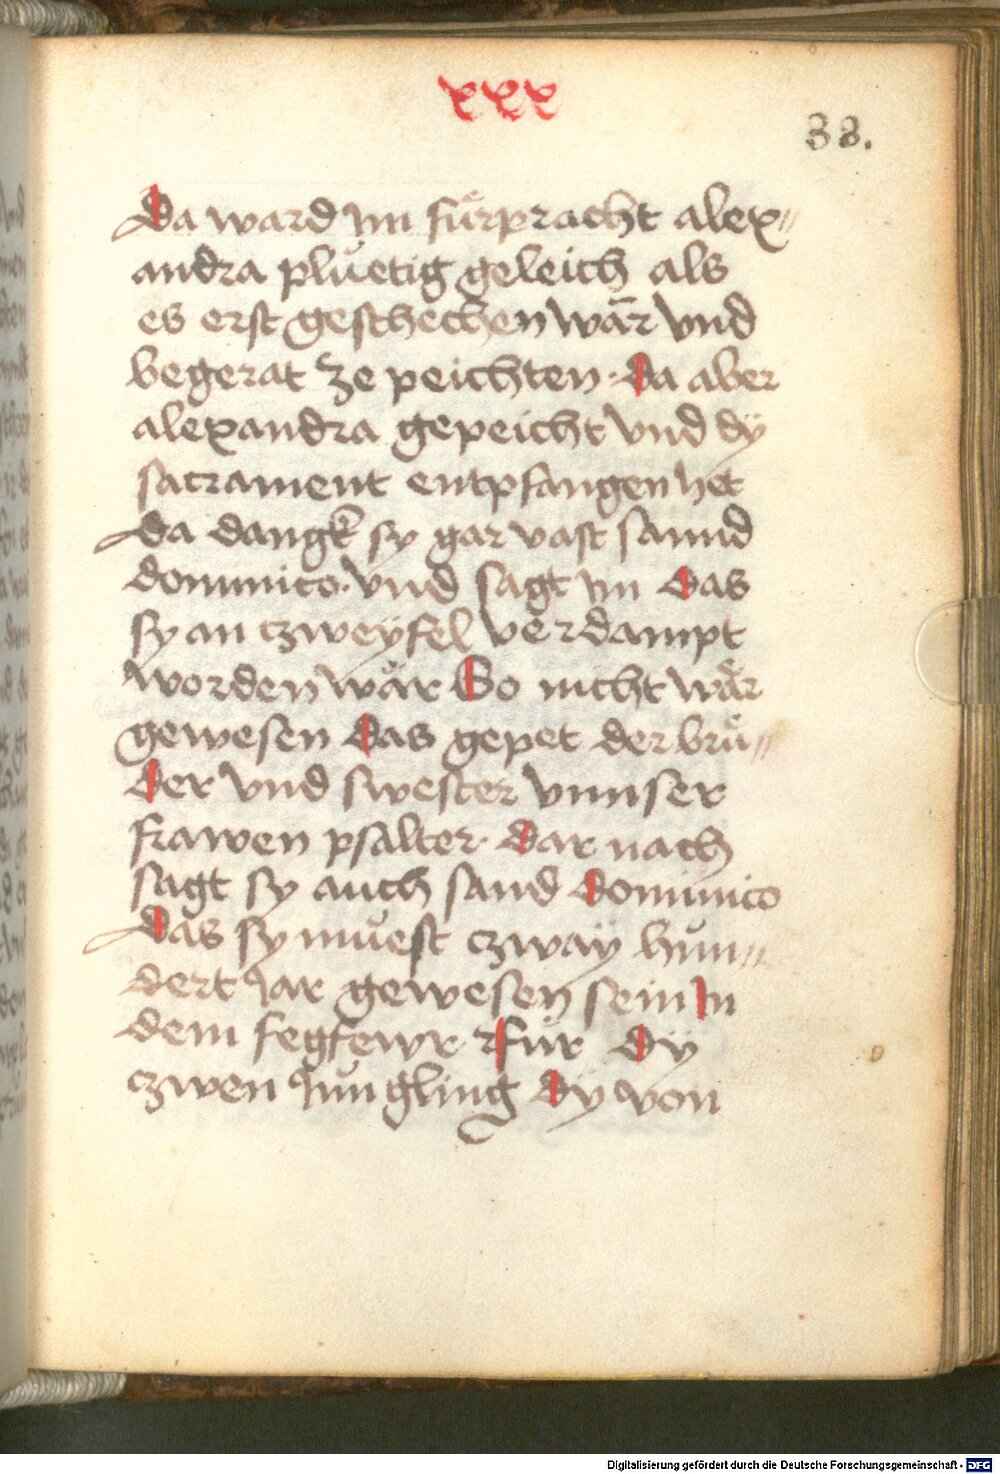 xxx
38.
Da ward im fuͤrpracht alex„
andra pluͤetig geleich als
es erst geschechen wär vnd
begerat ze peichten · da aber
alexandra gepeicht vnd dÿ
sacrament entpfangen het
Da dangk sy gar vast sannd
dominico · vnd sagt im das
sy an czweÿfel verdampt
worden waͤr So nicht waͤr
gewesen das gepet der bruͤ„
der vnd swester vnnser
frawen psalter · dar nach
sagt sy auch sand dominico
Das sy muͤest czwaÿ hun„
dert Jar gewesen sein in
dem fegfewr · für dÿ
czwen Jungling dÿ von
Digitalisierung gefördert durch die Deutsche Forschungsgemeinschaft - DFG